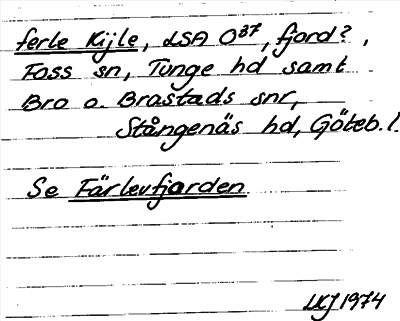 ferle Kijle, LSA O³⁷, fjord?,
Foss sn, Tunge hd samt
Bro o. Brastads snr,
Stångenäs hd, Göteb. l.
Se Färlevfjarden
1974